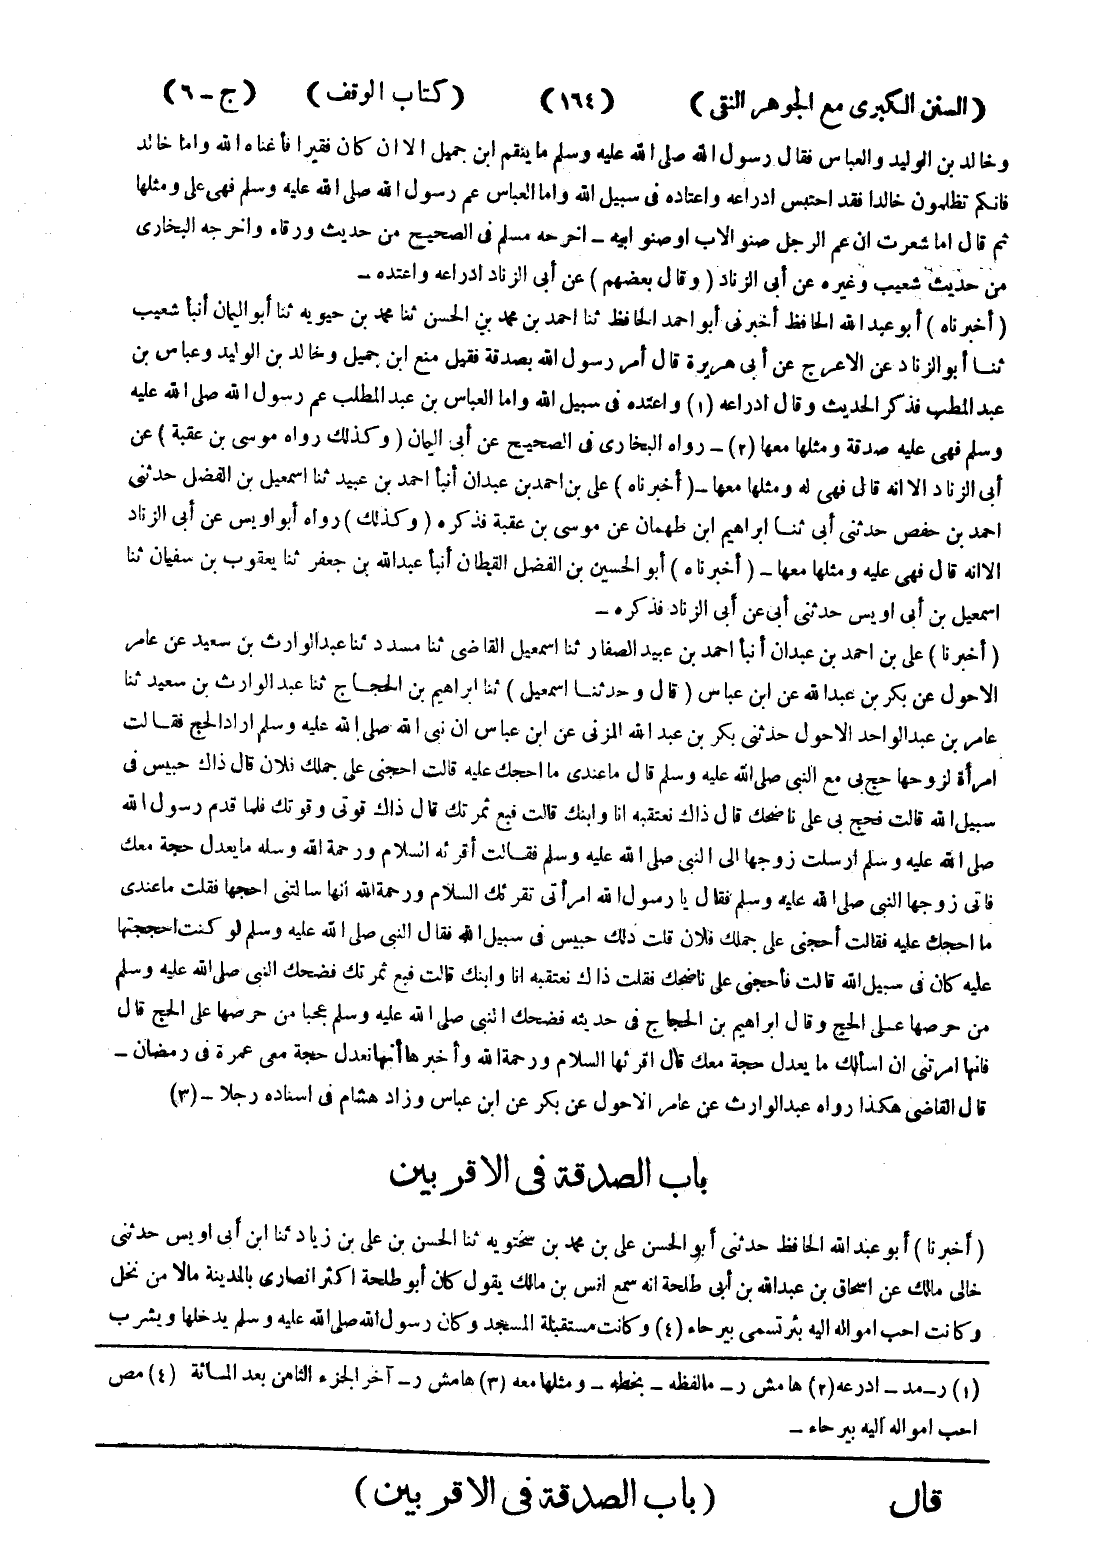 (السنن الكبرى مع الجوهر النقى) (١٦٤) (كتاب الوقف) (ج ـ ٦)
وخالد بن الوليد والعباس فقال رسول الله صلى الله عليه وسلم ما ينقم ابن جميل الا ان كان فقيرا فأغناه الله واما خالد
فانكم تظلمون خالدا فقد احتبس ادراعه واعتاده فى سبيل الله واما العباس عم رسول الله صلى الله عليه وسلم فهى على ومثلها
ثم قال اما شعرت ان عم الرجل صنو الاب او صنو ابيه ـ اخرجه مسلم فى الصحيح من حديث ورقاء واخرجه البخارى
من حديث شعيب وغيره عن أبى الزناد (وقال بعضهم) عن أبى الزناد ادراعه واعتده ـ
(أخبرناه) أبو عبد الله الحافظ أخبرنى أبو احمد الحافظ ثنا احمد بن محمد بن الحسن ثنا محمد بن حيويه ثنا أبو اليمان أنبأ شعيب
ثنا أبو الزناد عن الاعرج عن أبى هريرة قال أمر رسول الله بصدقة فقيل منع ابن جميل وخالد بن الوليد وعباس بن
عبد المطلب فذكر الحديث وقال ادراعه (١) واعتده فى سبيل الله واما العباس بن عبد المطلب عم رسول الله صلى الله عليه
وسلم فهى عليه صدقة ومثلها معها (٢) ـ رواه البخارى فى الصحيح عن أبى اليمان (وكذلك رواه موسى بن عقبة) عن
أبى الزناد الا انه قال فهى له ومثلها معها ـ (أخبرناه) على بن احمد بن عبدان أنبأ احمد بن عبيد ثنا اسمعيل بن الفضل حدثنى
احمد بن حفص حدثنى أبى ثنا ابراهيم ابن طهمان عن موسى بن عقبة فذكره (وكذلك) رواه أبو اويس عن أبى الزناد
الا انه قال فهى عليه ومثلها معها ـ (أخبرناه) أبو الحسين بن الفضل القطان أنبأ عبد الله بن جعفر ثنا يعقوب بن سفيان ثنا
اسمعيل بن أبى اويس حدثنى أبى عن أبى الزناد فذكره ـ
(أخبرنا) على بن احمد بن عبدان أنبأ احمد بن عبيد الصفار ثنا اسمعيل القاضى ثنا مسدد ثنا عبد الوارث بن سعيد عن عامر
الاحول عن بكر بن عبد الله عن ابن عباس (قال وحدثنا اسمعيل) ثنا ابراهيم بن الحجاج ثنا عبد الوارث بن سعيد ثنا
عامر بن عبد الواحد الاحول حدثنى بكر بن عبد الله المزنى عن ابن عباس ان نبى الله صلى الله عليه وسلم اراد الحج فقالت
امرأة لزوجها حج بى مع النبى صلى الله عليه وسلم قال ما عندى ما احجك عليه قالت احجنى على جملك فلان قال ذاك حبيس فى
سبيل الله قالت فحج بى على ناضحك قال ذاك نعتقبه انا وابنك قالت فبع ثمرتك قال ذاك قوتى وقوتك فلما قدم رسول الله
صلى الله عليه وسلم أرسلت زوجها الى النبى صلى الله عليه وسلم فقالت أقرئه السلام ورحمة الله وسله ما يعدل حجة معك
فاتى زوجها النبى صلى الله عليه وسلم فقال يا رسول الله امرأتى تقرئك السلام ورحمة الله انها سالتنى احجها فقلت ما عندى
ما احجك عليه فقالت أحجنى على جملك فلان قلت ذلك حبيس فى سبيل الله فقال النبى صلى الله عليه وسلم لو كنت احججتها
عليه كان فى سبيل الله قالت فأحجنى على ناضحك فقلت ذاك نعتقبه انا وابنك قالت فبع ثمرتك فضحك النبى صلى الله عليه وسلم
من حرصها على الحج وقال ابراهيم بن الحجاج فى حديثه فضحك النبى صلى الله عليه وسلم عجبا من حرصها على الحج قال
فانها امرتنى ان اسألك ما يعدل حجة معك قال اقرئها السلام ورحمة الله وأخبرها أنها تعدل حجة معى عمرة فى رمضان ـ
قال القاضى هكذا رواه عبد الوارث عن عامر الاحول عن بكر عن ابن عباس وزاد هشام فى اسناده رجلا ـ (٣)
باب الصدقة فى الاقربين
(أخبرنا) أبو عبد الله الحافظ حدثنى أبو الحسن على بن محمد بن سختويه ثنا الحسن بن على بن زياد ثنا ابن أبى اويس حدثنى
خالى مالك عن اسحاق بن عبد الله بن أبى طلحة انه سمع انس بن مالك يقول كان أبو طلحة اكثر انصارى بالمدينة مالا من نخل
وكانت احب امواله اليه بئر تسمى بيرحاء (٤) وكانت مستقبلة المسجد وكان رسول الله صلى الله عليه وسلم يدخلها ويشرب
(١) ر ـ مد ـ ادرعه (٢) هامش ر ـ مالفظه ـ بخطه ـ ومثلها معه (٣) هامش ر ـ آخر الجزء الثامن بعد المائة (٤) مص
احب امواله اليه بيرحاء ـ
قال (باب الصدقة فى الاقربين)